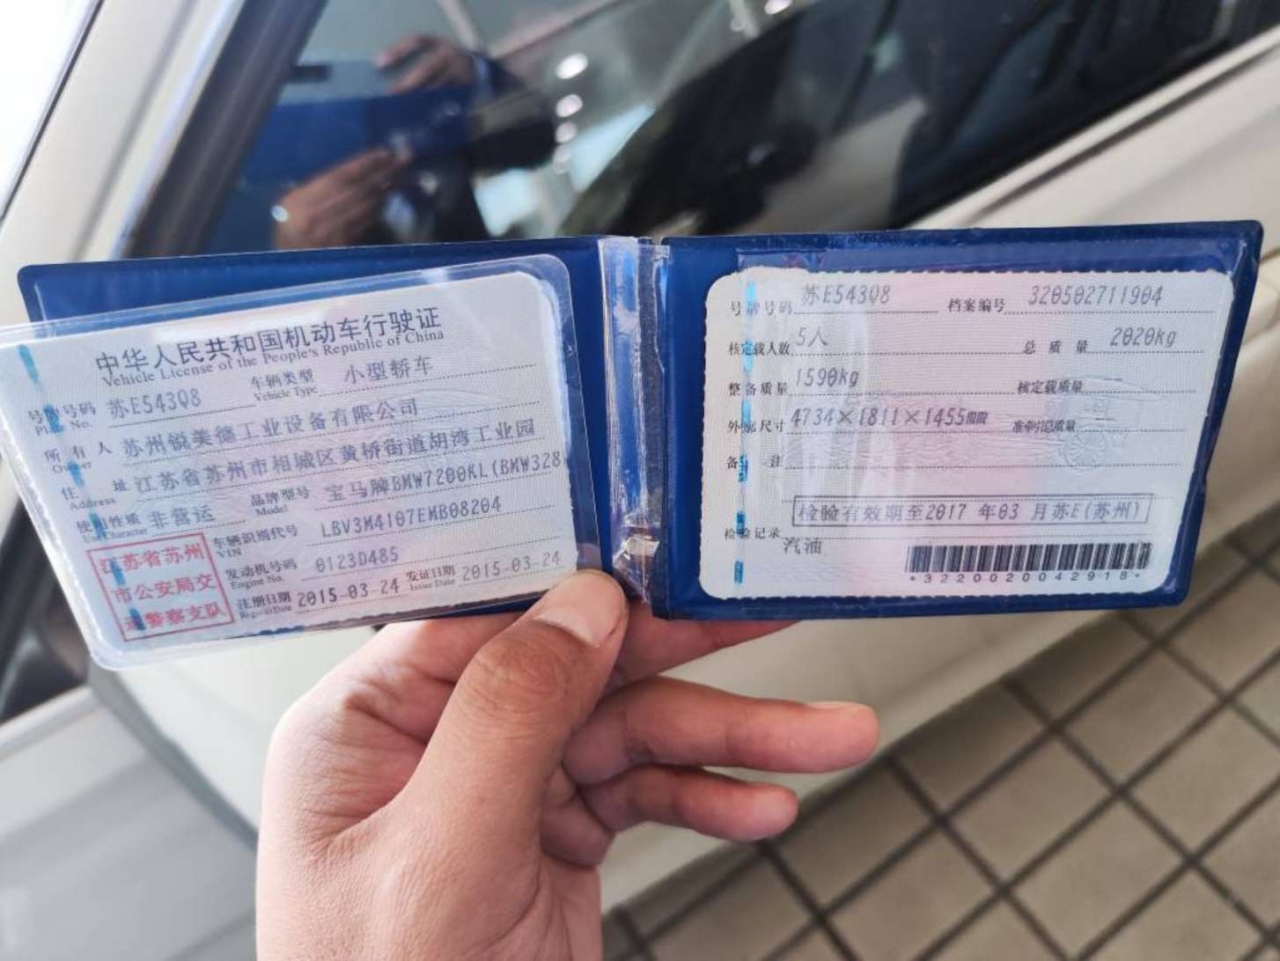 中华人民共和国机动车行驶证
Vehicle License of the People's Republic of China
号牌号码 苏E543Q8 车辆类型 小型轿车
Plate No. Vehicle Type
所有人 苏州锐美德工业设备有限公司
Owner
住址 江苏省苏州市相城区黄桥街道胡湾工业园
Address
使用性质 非营运 品牌型号 宝马牌BMW7200KL(BMW328
Use Character Model
江苏省苏州
市公安局交
通警察支队
车辆识别代号 LBV3M4107EMB08204
VIN
发动机号码 0123D485
Engine No.
注册日期 2015-03-24 发证日期 2015-03-24
Register Date Issue Date
号牌号码 苏E543Q8 档案编号 320502711904
核定载人数 5人 总质量 2020kg
整备质量 1590kg 核定载质量
外廓尺寸 4734×1811×1455mm 准牵引总质量
备注
检验有效期至2017 年03 月苏E(苏州)
检验记录
汽油
*3220020042918*